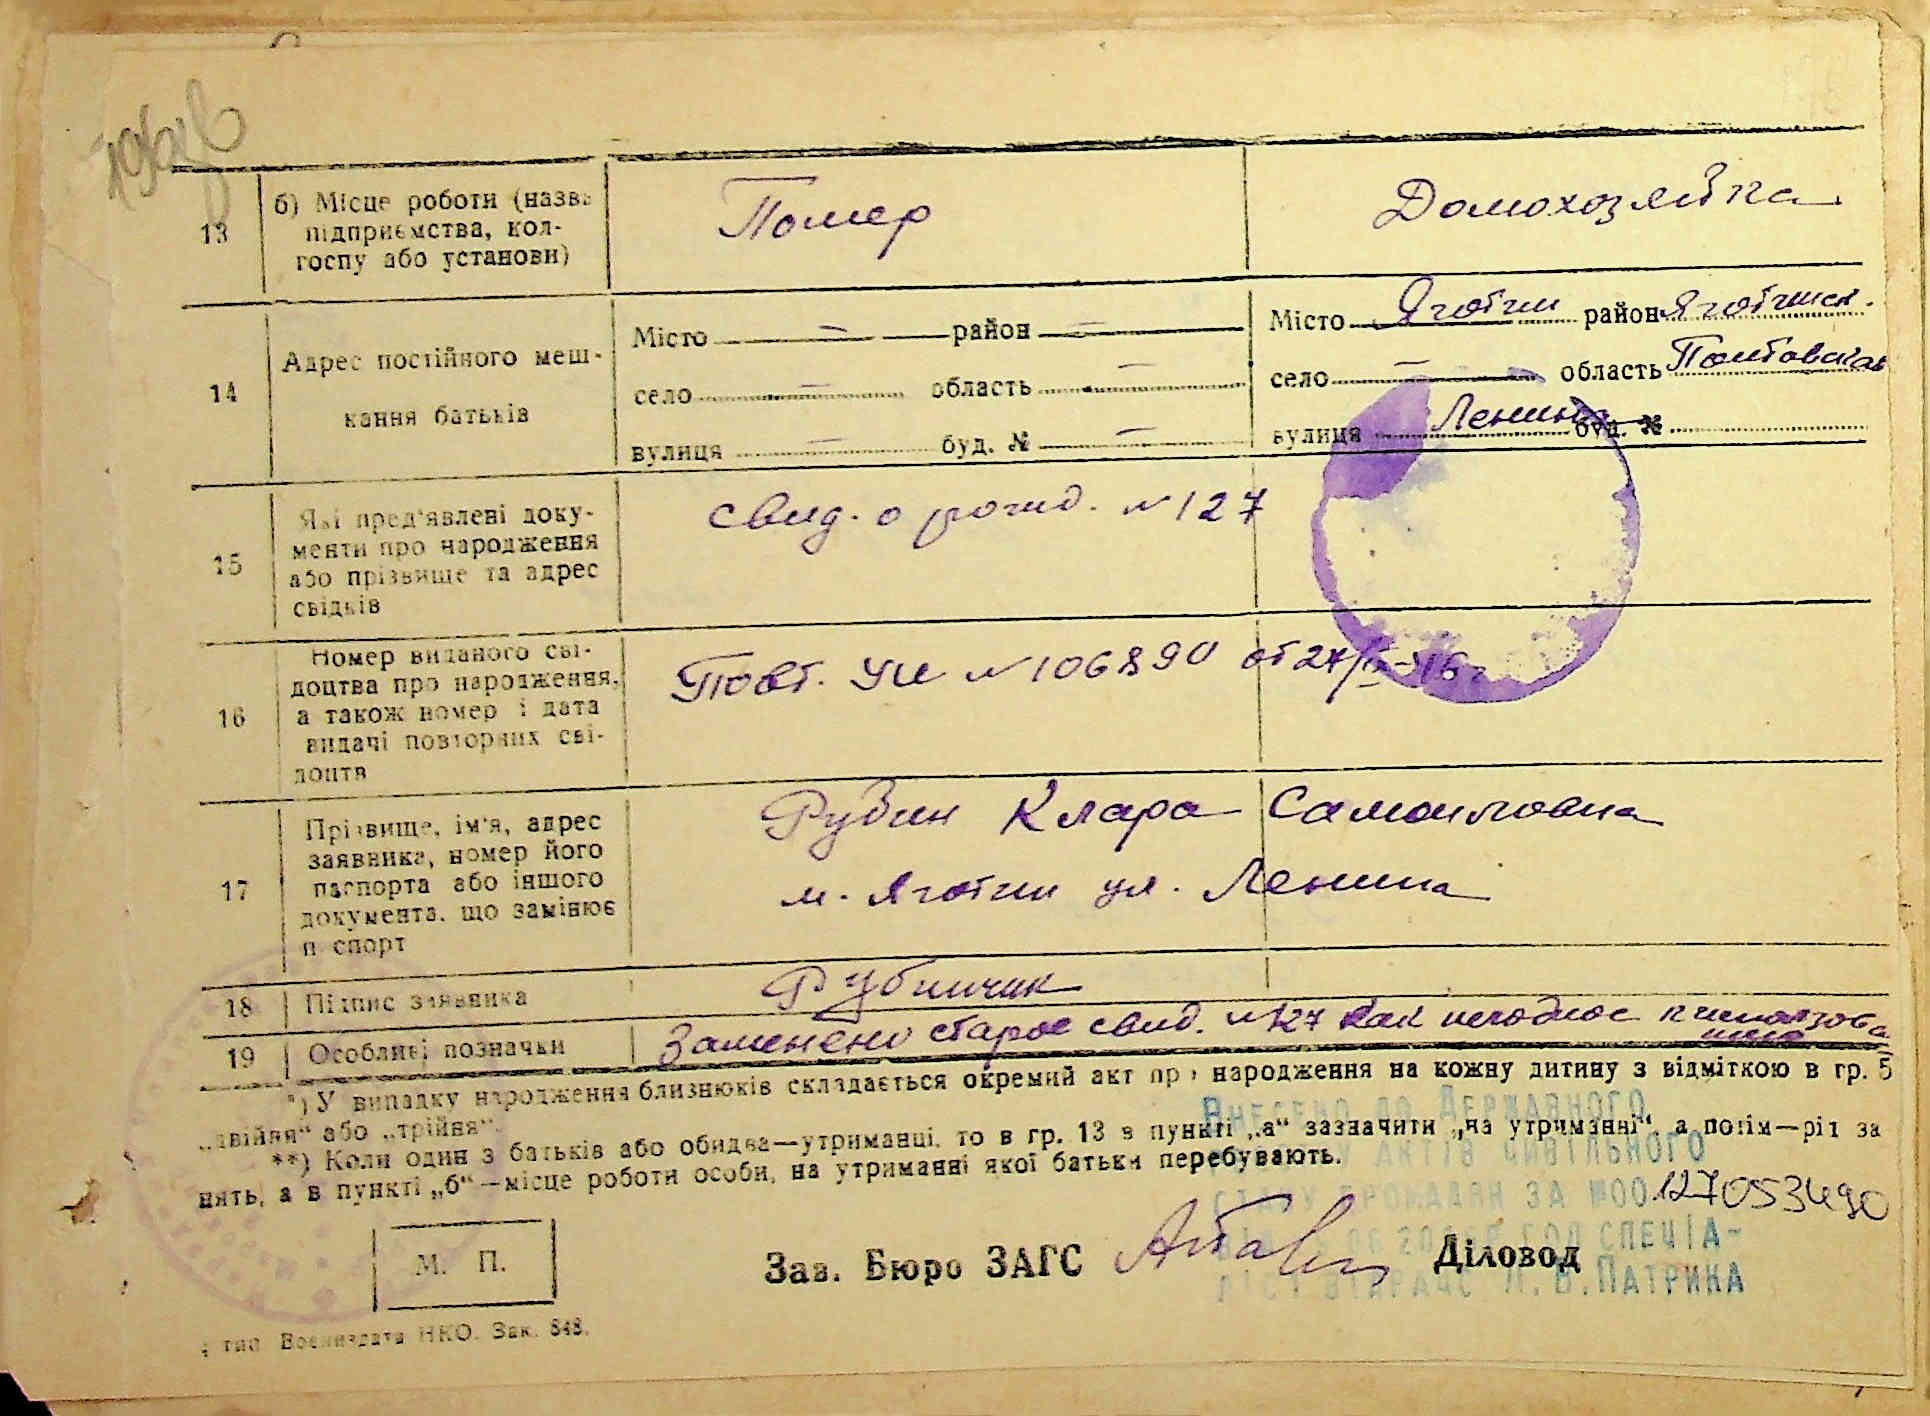 13
б) Місце роботи (назва
підприємства, кол-
госпу або установи)
Помер
Домохозяйка
14
Адрес постійного меш-
кання батьків
Місто — район —
село — область —
вулиця — буд. № —
Місто Яготин район Яготинск.
село — область Полтовская
вулиця Ленина буд. №
15
Які пред'явлені доку-
менти про народження
або прізвище та адрес
свідків
свид. о рожд. № 127
16
Номер виданого сві-
доцтва про народження,
а також номер і дата
видачі повторних сві-
доцтв
Повт. УИ № 106890 от 27/
17
Прізвище, ім'я, адрес
заявника, номер його
паспорта або іншого
документа, що замінює
п спорт
Рубин Клара Самоиловна
м. Яготин ул. Ленина
18
Підпис заявника
Рубинчик
19
Особливі позначки
Заменено старое свид. № 127 как негодное
*) У випадку народження близнюків складається окремий акт про народження на кожну дитину з відміткою в гр. 5
„двійня“ або „трійня“.
**) Коли один з батьків або обидва—утриманці, то в гр. 13 в пункті „а“ зазначити „на утриманні“, а потім—рід за
нять, а в пункті „б“—місце роботи особи, на утриманні якої батьки перебувають.
Внесено до Державного
актів цивільного
стану громадян за №00127053490
спеціа-
ліст Л.В.Патрика
М. П.
Зав. Бюро ЗАГС
Діловод
тип. Воениздата НКО. Зак. 848.